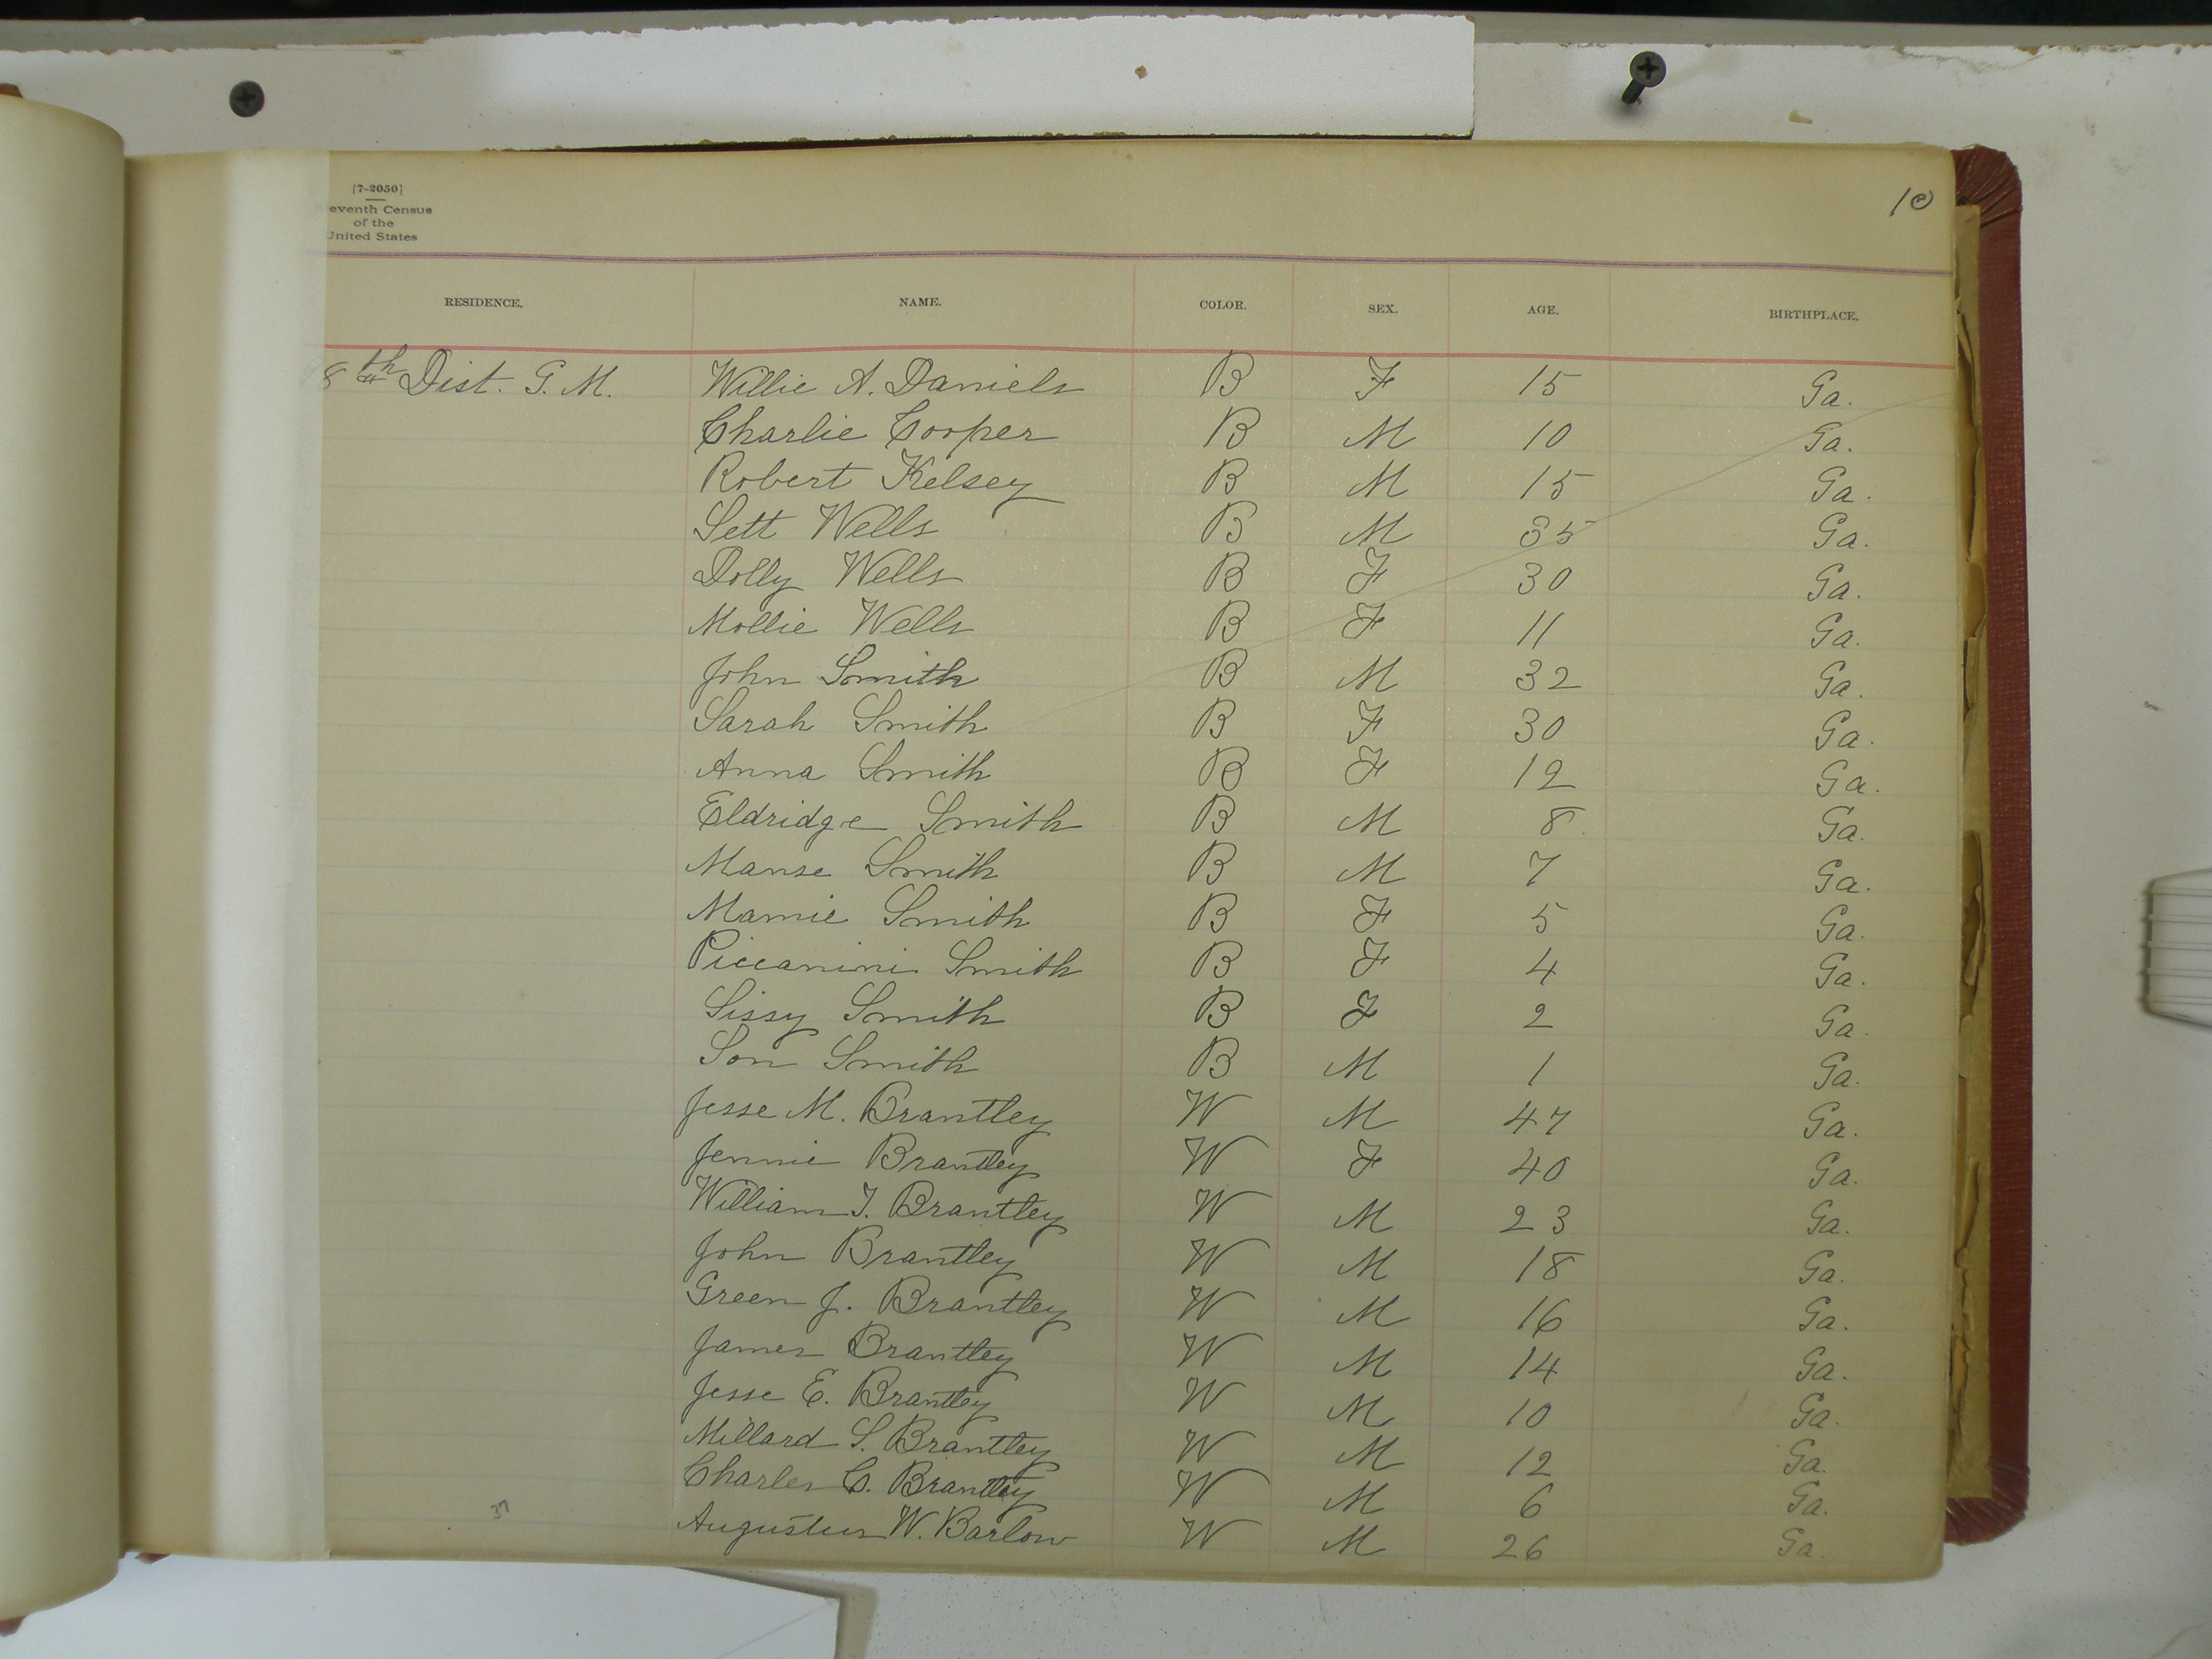 10
[7-2050]
eventh Census
of the
United States
RESIDENCE. NAME. COLOR. SEX. AGE. BIRTHPLACE.
8th Dist. G. M. Willie A. Daniels B F 15 Ga.
Charlie Cooper B M 10 Ga.
Robert Kelsey B M 15 Ga.
Sett Wells B M 35 Ga.
Dolly Wells B F 30 Ga.
Mollie Wells B F 11 Ga.
John Smith B M 32 Ga.
Sarah Smith B F 30 Ga.
Anna Smith B F 12 Ga.
Eldridge Smith B M 8 Ga.
Manse Smith B M 7 Ga.
Mamie Smith B F 5 Ga.
Piccanini Smith B F 4 Ga.
Sissy Smith B F 2 Ga.
Son Smith B M 1 Ga.
Jesse M. Brantley W M 47 Ga.
Jennie Brantley W F 40 Ga.
William T. Brantley W M 23 Ga.
John Brantley W M 18 Ga.
Green J. Brantley W M 16 Ga.
James Brantley W M 14 Ga.
Jesse E. Brantley W M 10 Ga.
Millard S. Brantley W M 12 Ga.
Charles C. Brantley W M 6 Ga.
37 Augustus W. Barlow W M 26 Ga.